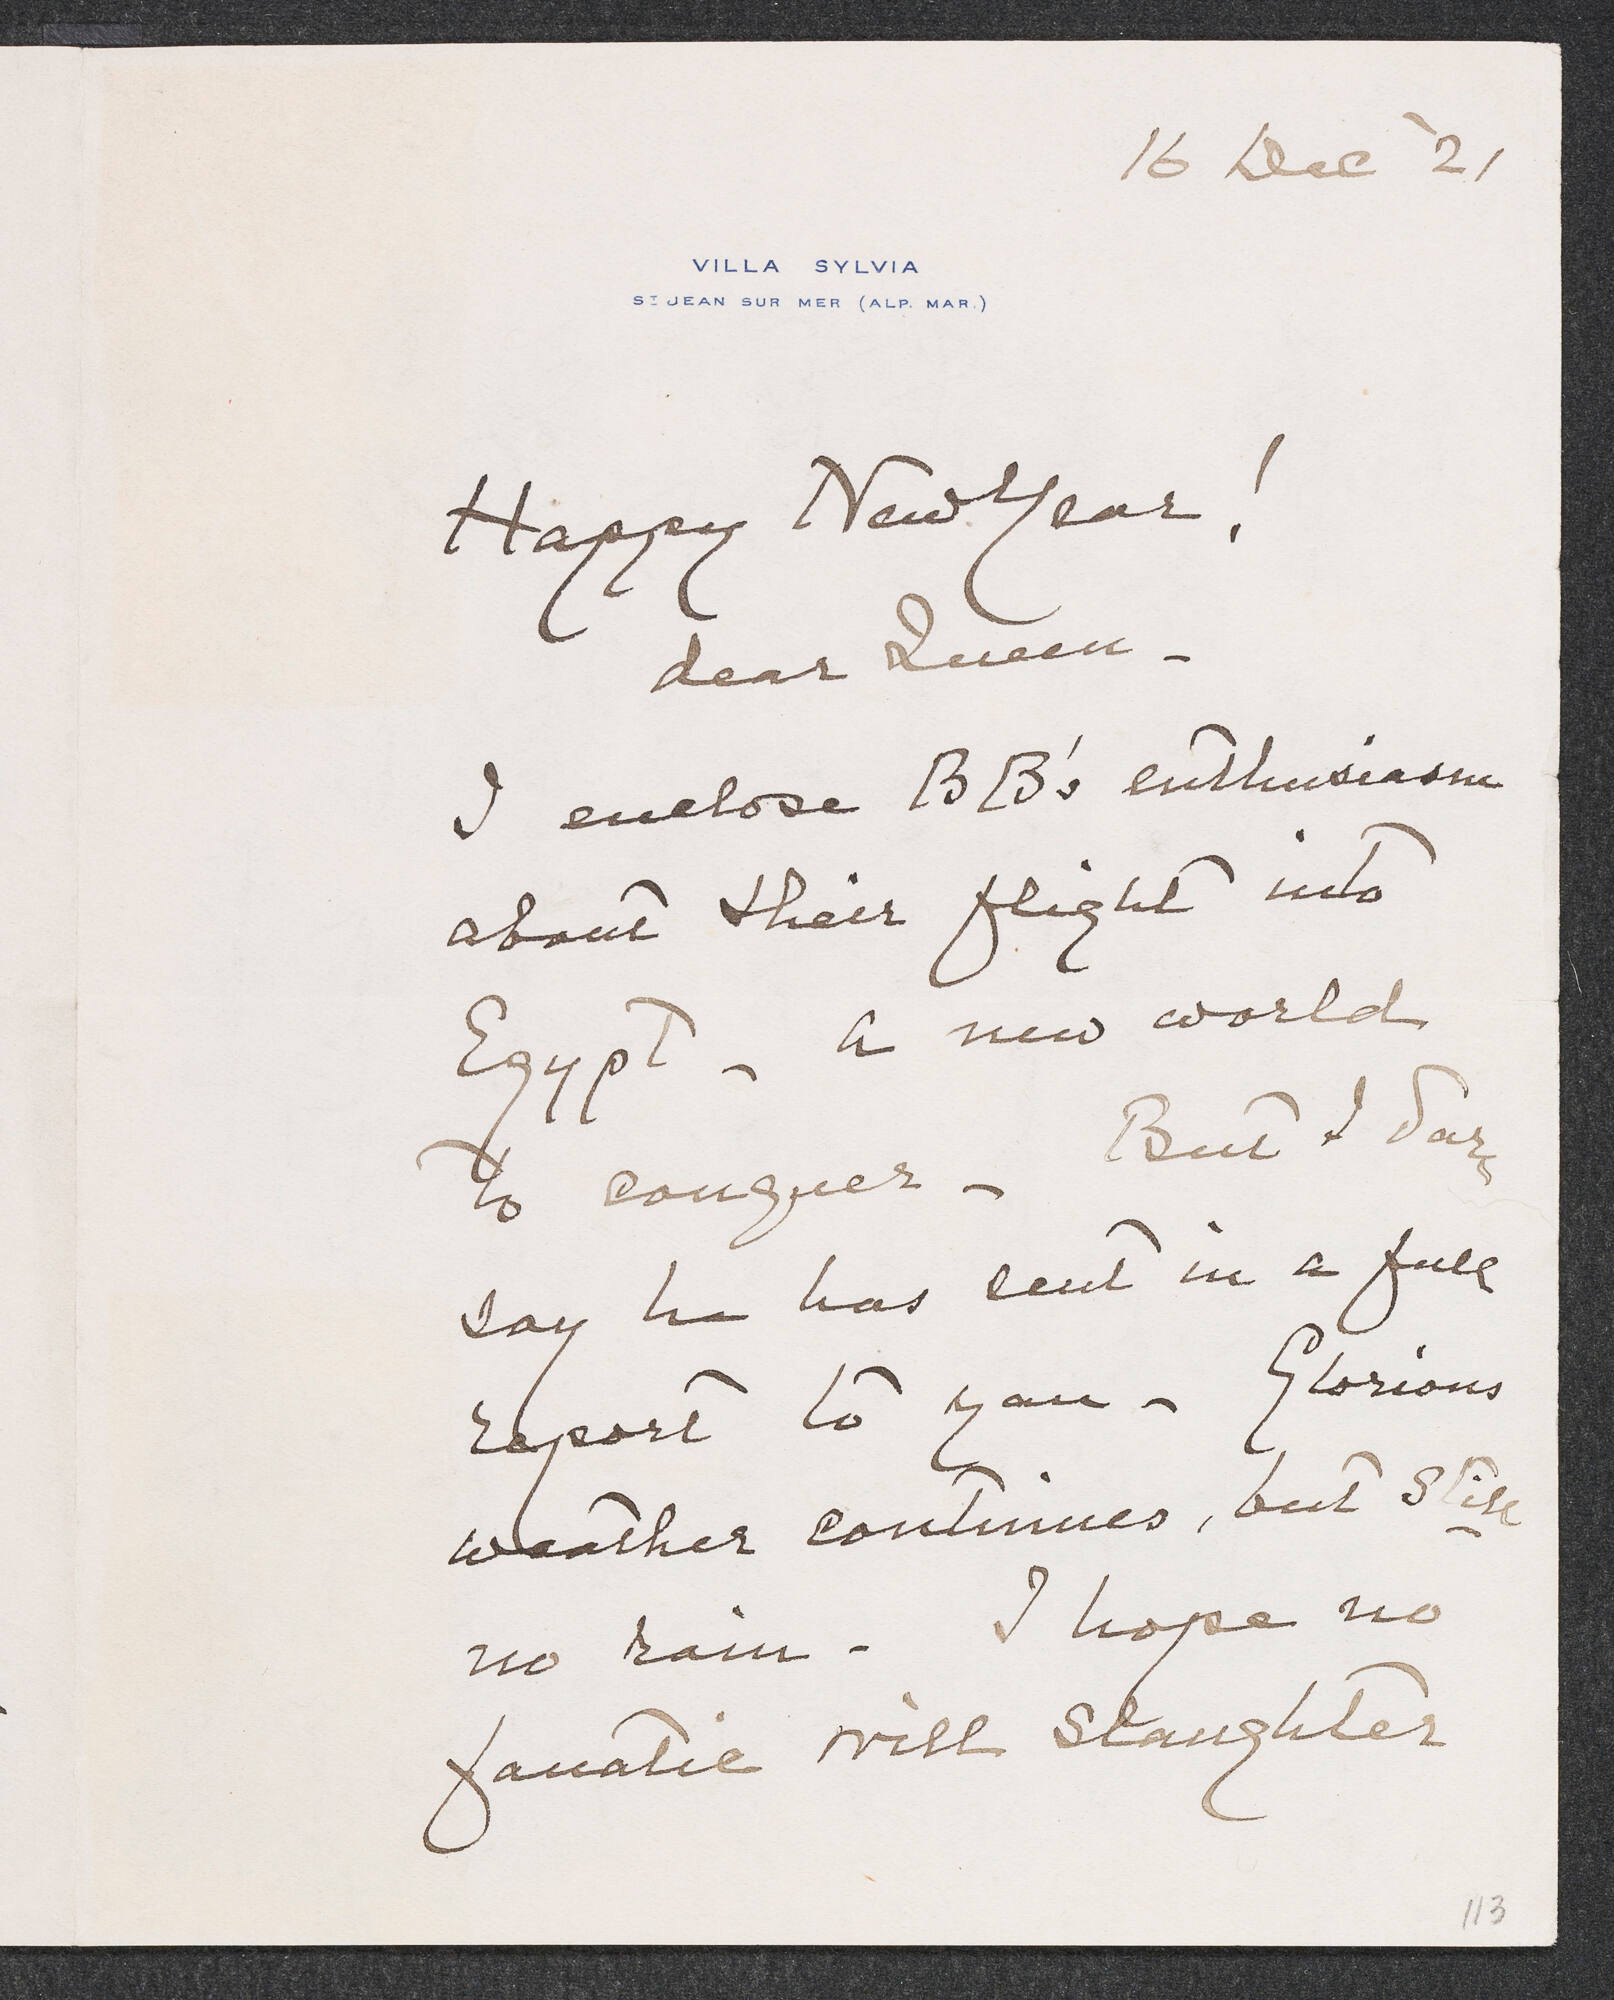 16 Dec '21
VILLA SYLVIA
ST JEAN SUR MER (ALP. MAR.)
Happy New Year!
dear Queen -
I enclose BB's enthusiasm
about their flight into
Egypt - a new world
to conquer - But I dare
say he has sent in a full
report to you - Glorious
weather continues, but still
no rain - I hope no
fanatic will slaughter
113